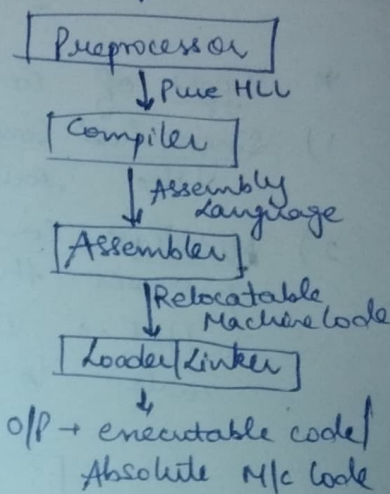 Preprocessor
Pure HLL
Compiler
Assembly
Language
Assembler
Relocatable
Machine Code
Loader/Linker
O/P → executable code/
Absolute M/c Code